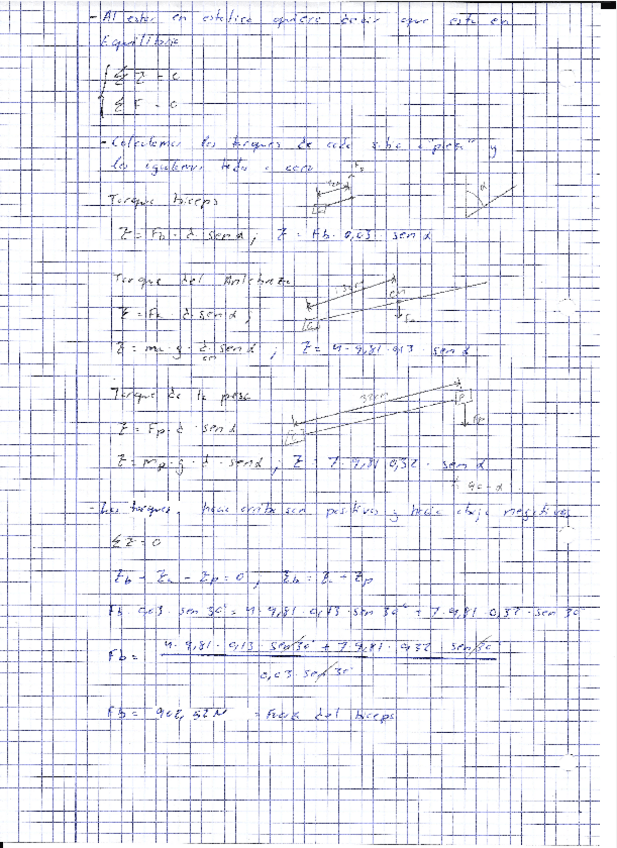 - Al estar en estatica quiere decir que esta en
Equilibrio
Σ τ = 0
Σ F = 0
- Calculamos los torques de cada sitio o "pieza" y
los igualamos todo a cero
Torque biceps
τ = Fb · d · sen α ; τ = Fb · 0,03 · sen α
α
Torque del Antebrazo
τ = Fa · d · sen α ;
τ = ma · g · d · sen α ; τ = 4 · 9,81 · 0,13 · sen α
cm
Torque de la pesa
τ = Fp · d · sen α
Fp
τ = mp · g · d · sen α ; τ = 7 · 9,81 · 0,32 · sen α
90 - α
- Los torques, hacia arriba son positivos y hacia abajo negativos
Σ τ = 0
τb - τa - τp = 0 ; τb = τa + τp
Fb · 0,03 · sen 30° = 4 · 9,81 · 0,13 · sen 30° + 7 · 9,81 · 0,32 · sen 30
Fb = 4 · 9,81 · 0,13 · sen 30° + 7 · 9,81 · 0,32 · sen 30
0,03 · sen 30°
Fb = 902,52 N = Fuerza del biceps